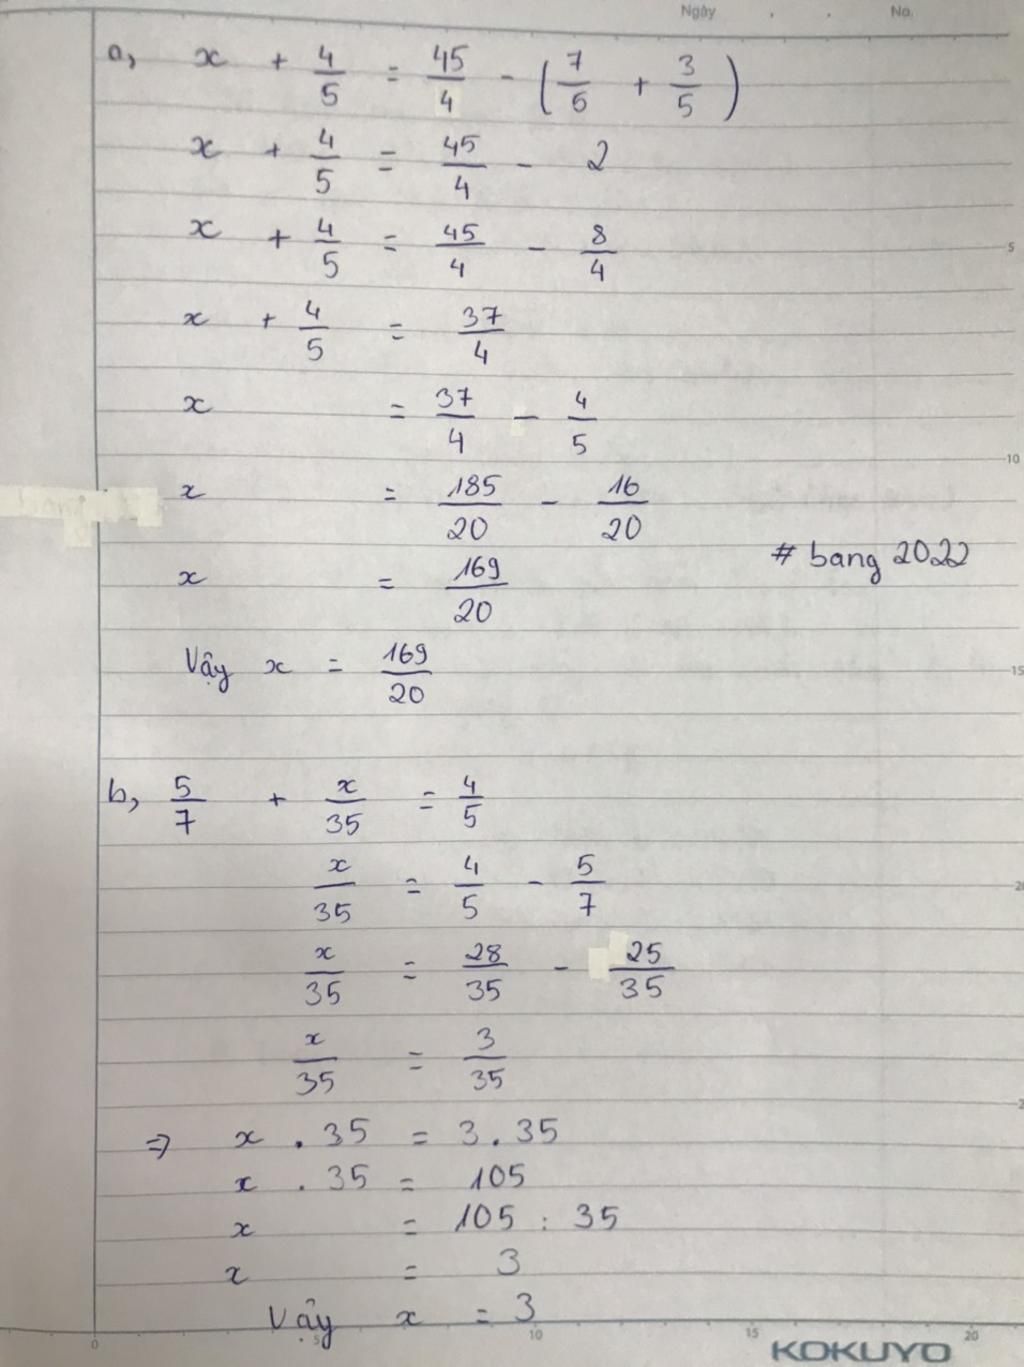 Ngày . . No.
a, x + 4/5 = 45/4 - (7/5 + 3/5)
x + 4/5 = 45/4 - 2
x + 4/5 = 45/4 - 8/4
x + 4/5 = 37/4
x = 37/4 - 4/5
x = 185/20 - 16/20
# bang 2022
x = 169/20
Vậy x = 169/20
b, 5/7 + x/35 = 4/5
x/35 = 4/5 - 5/7
x/35 = 28/35 - 25/35
x/35 = 3/35
=> x . 35 = 3 . 35
x . 35 = 105
x = 105 : 35
x = 3
Vậy x = 3
0 5 10 15 20
KOKUYO
5
10
15